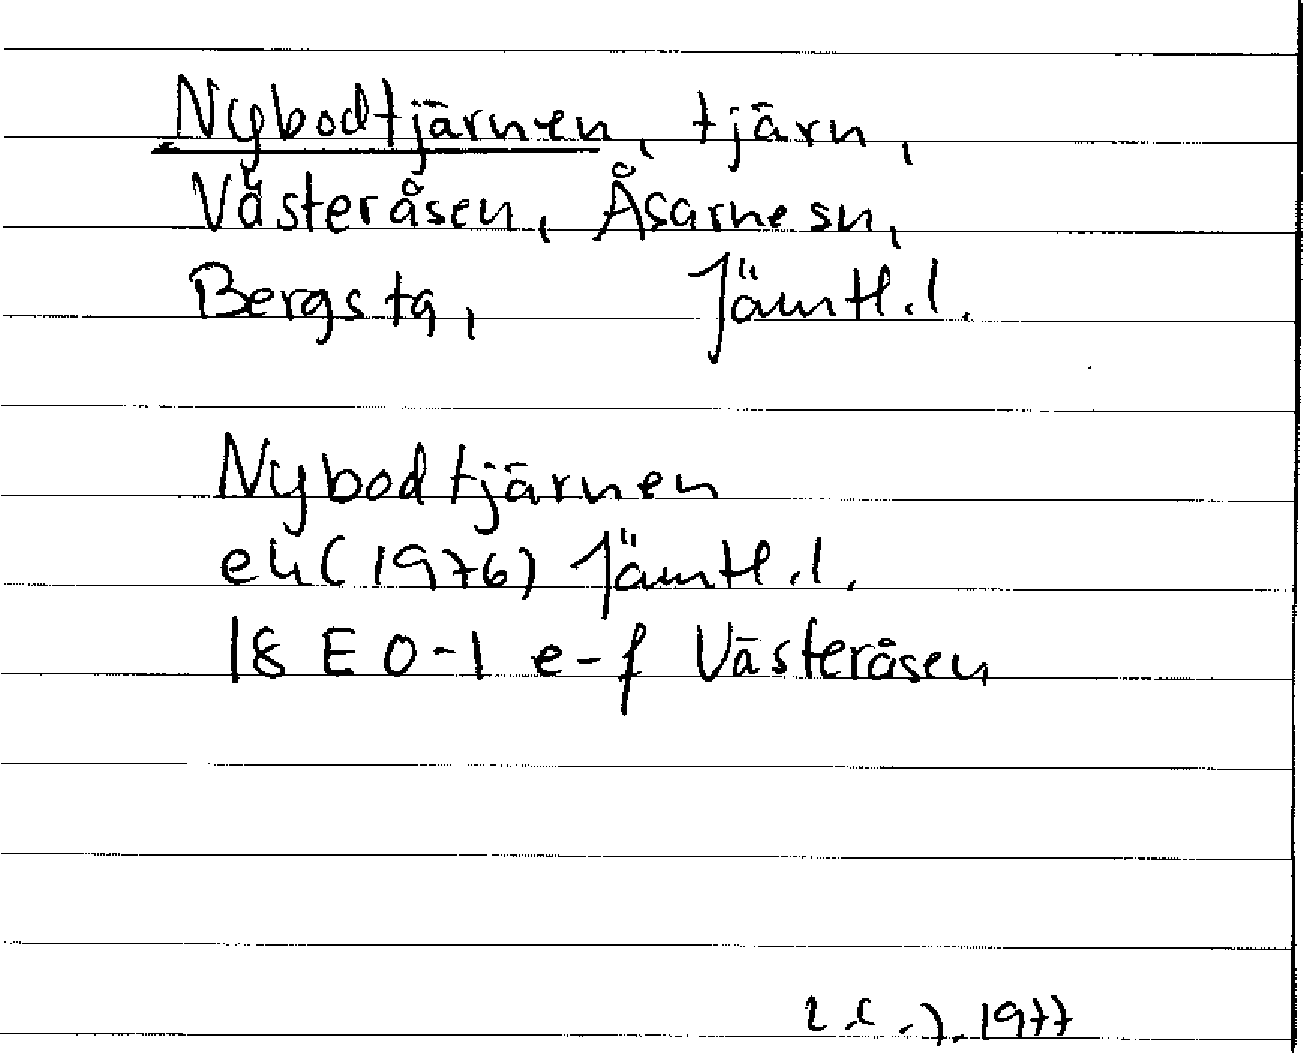 Nybodtjärnen, tjärn,
Västeråsen, Åsarne sn,
Bergs tg, Jämtl.l.
Nybodtjärnen
ek (1976) Jämtl.l.
18 E 0-1 e-f Västeråsen
1977